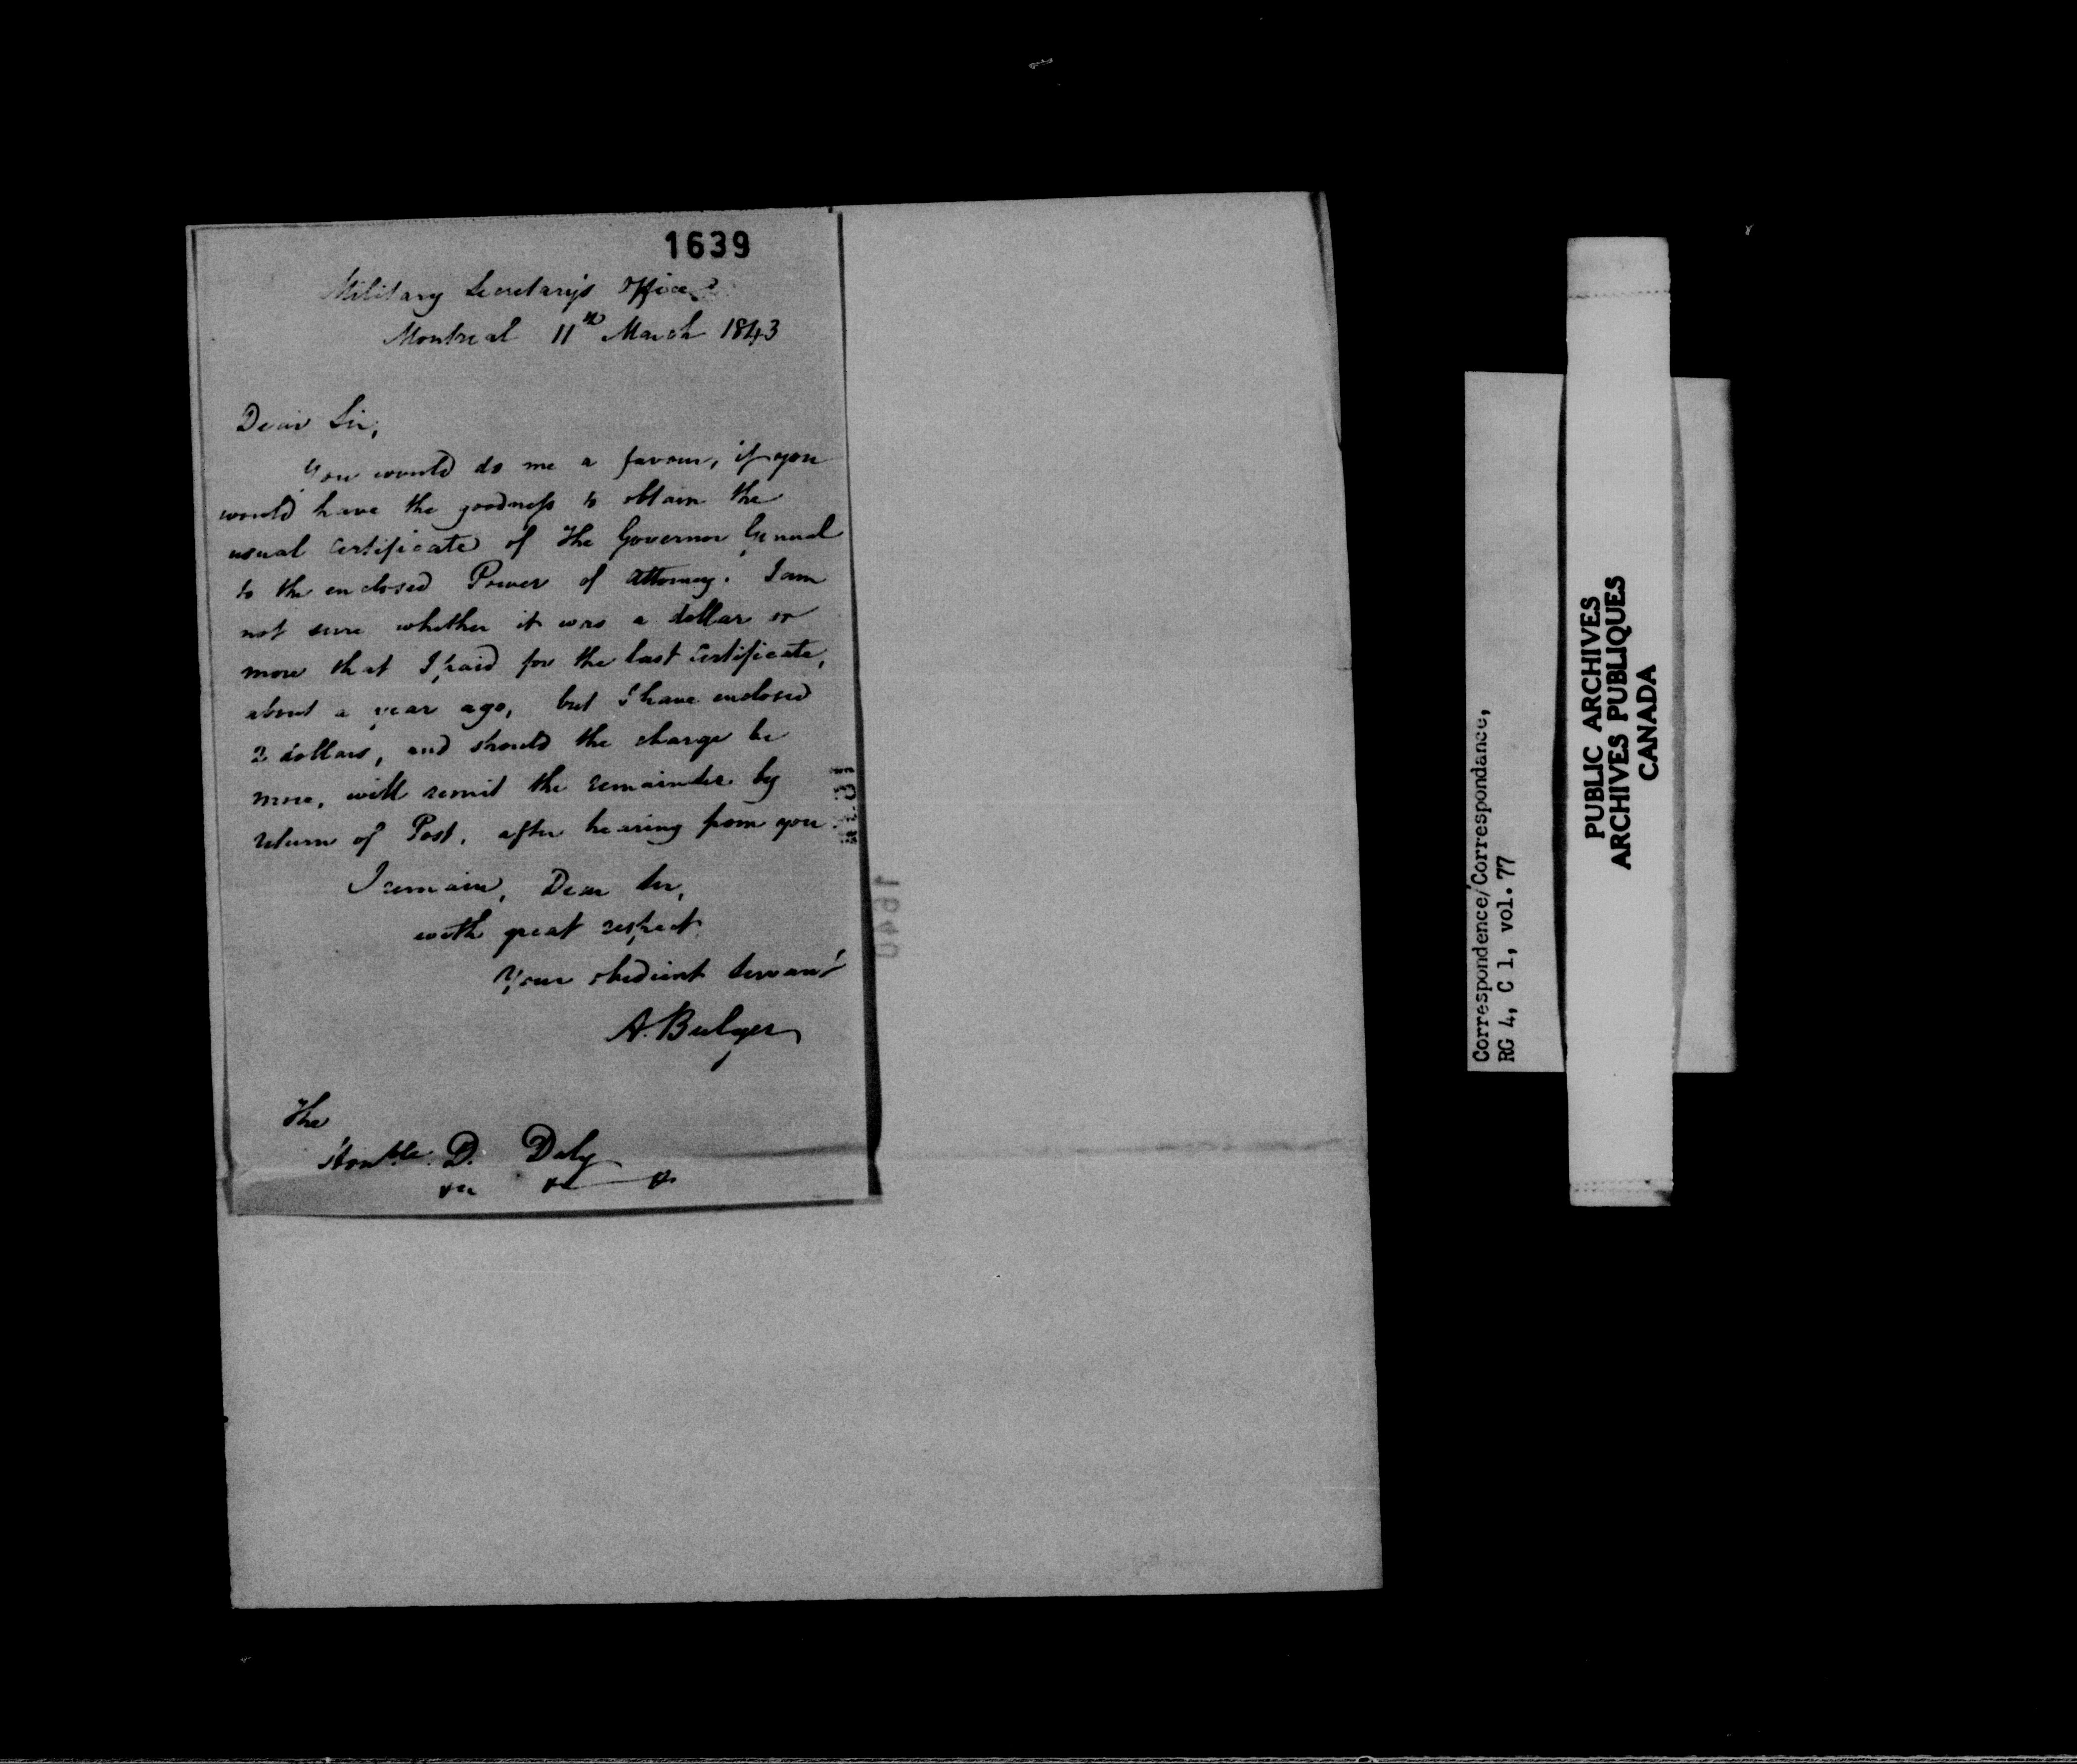 1639
Military Secretary's Office
Montreal 11th March 1843
Dear Sir,
You would do me a favour, if you
would have the goodness to obtain the
usual Certificate of the Governor General
to the enclosed Power of Attorney. I am
not sure whether it was a dollar or
more that I paid for the last Certificate,
about a year ago, but I have enclosed
2 dollars, and should the charge be
more, will remit the remainder by
return of Post, after hearing from you.
I remain, Dear Sir,
with great respect
Your obedient Servant
A. Bulger
The
Honble. D. Daly
1640
Correspondence/Correspondance,
RG 4, C 1, vol. 77
PUBLIC ARCHIVES
ARCHIVES PUBLIQUES
CANADA